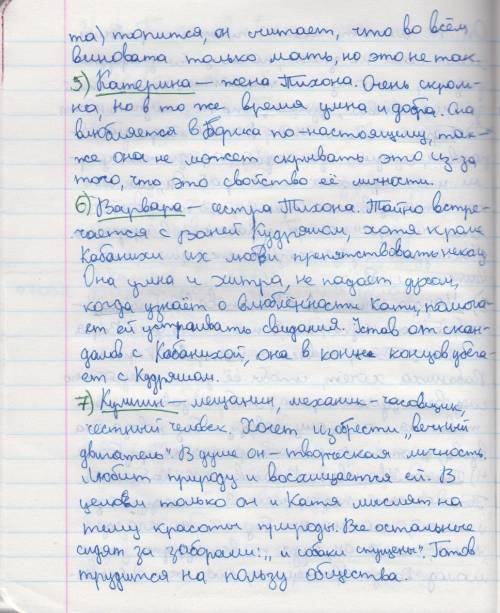 та) топится, он считает, что во всём
виновата только мать, но это не так.
5) Катерина – жена Тихона. Очень скром-
на, но в то же время умна и добра. Она
влюбляется в Бориса по-настоящему, так-
же она не может скрывать это из-за
того, что это свойство её личности.
6) Варвара – сестра Тихона. Тайно встре-
чается с Ваней Кудряшом, хотя кроме
Кабанихи их любви препятствовать некому
Она умна и хитра, не падает духом,
когда узнаёт о влюблённости Кати, помога-
ет ей устраивать свидания. Устав от скан-
далов с Кабанихой, она в конце концов убега-
ет с Кудряшом.
7) Кулигин – мещанин, механик-часовщик,
честный человек. Хочет изобрести „вечный
двигатель". В душе он – творческая личность.
Любит природу и восхищается ей. В
целом только он и Катя мыслят на
тему красоты природы. Все остальные
сидят за заборами: „и собаки спущены". Готов
трудится на пользу общества.